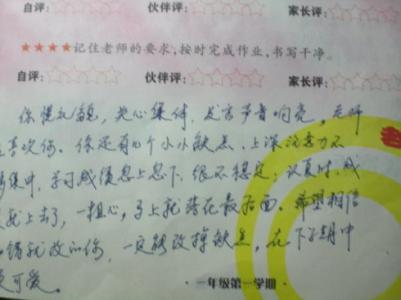 自评：☆☆☆☆☆ 伙伴评：☆☆☆☆☆ 家长评：☆☆☆☆☆
★★★★记住老师的要求，按时完成作业，书写干净。
自评：☆☆☆☆☆ 伙伴评：☆☆☆☆☆ 家长评：☆☆☆☆☆
你懂礼貌，关心集体，发言声音响亮。老师
喜欢你。你还有几个小小缺点，上课注意力不
集中，学习成绩忽上忽下，很不稳定；认真时，成
就上去了，一粗心，马上就落在最后面。希望相信
错就改的你，一定能改掉缺点，在下学期中
更可爱。
·一年级第一学期·